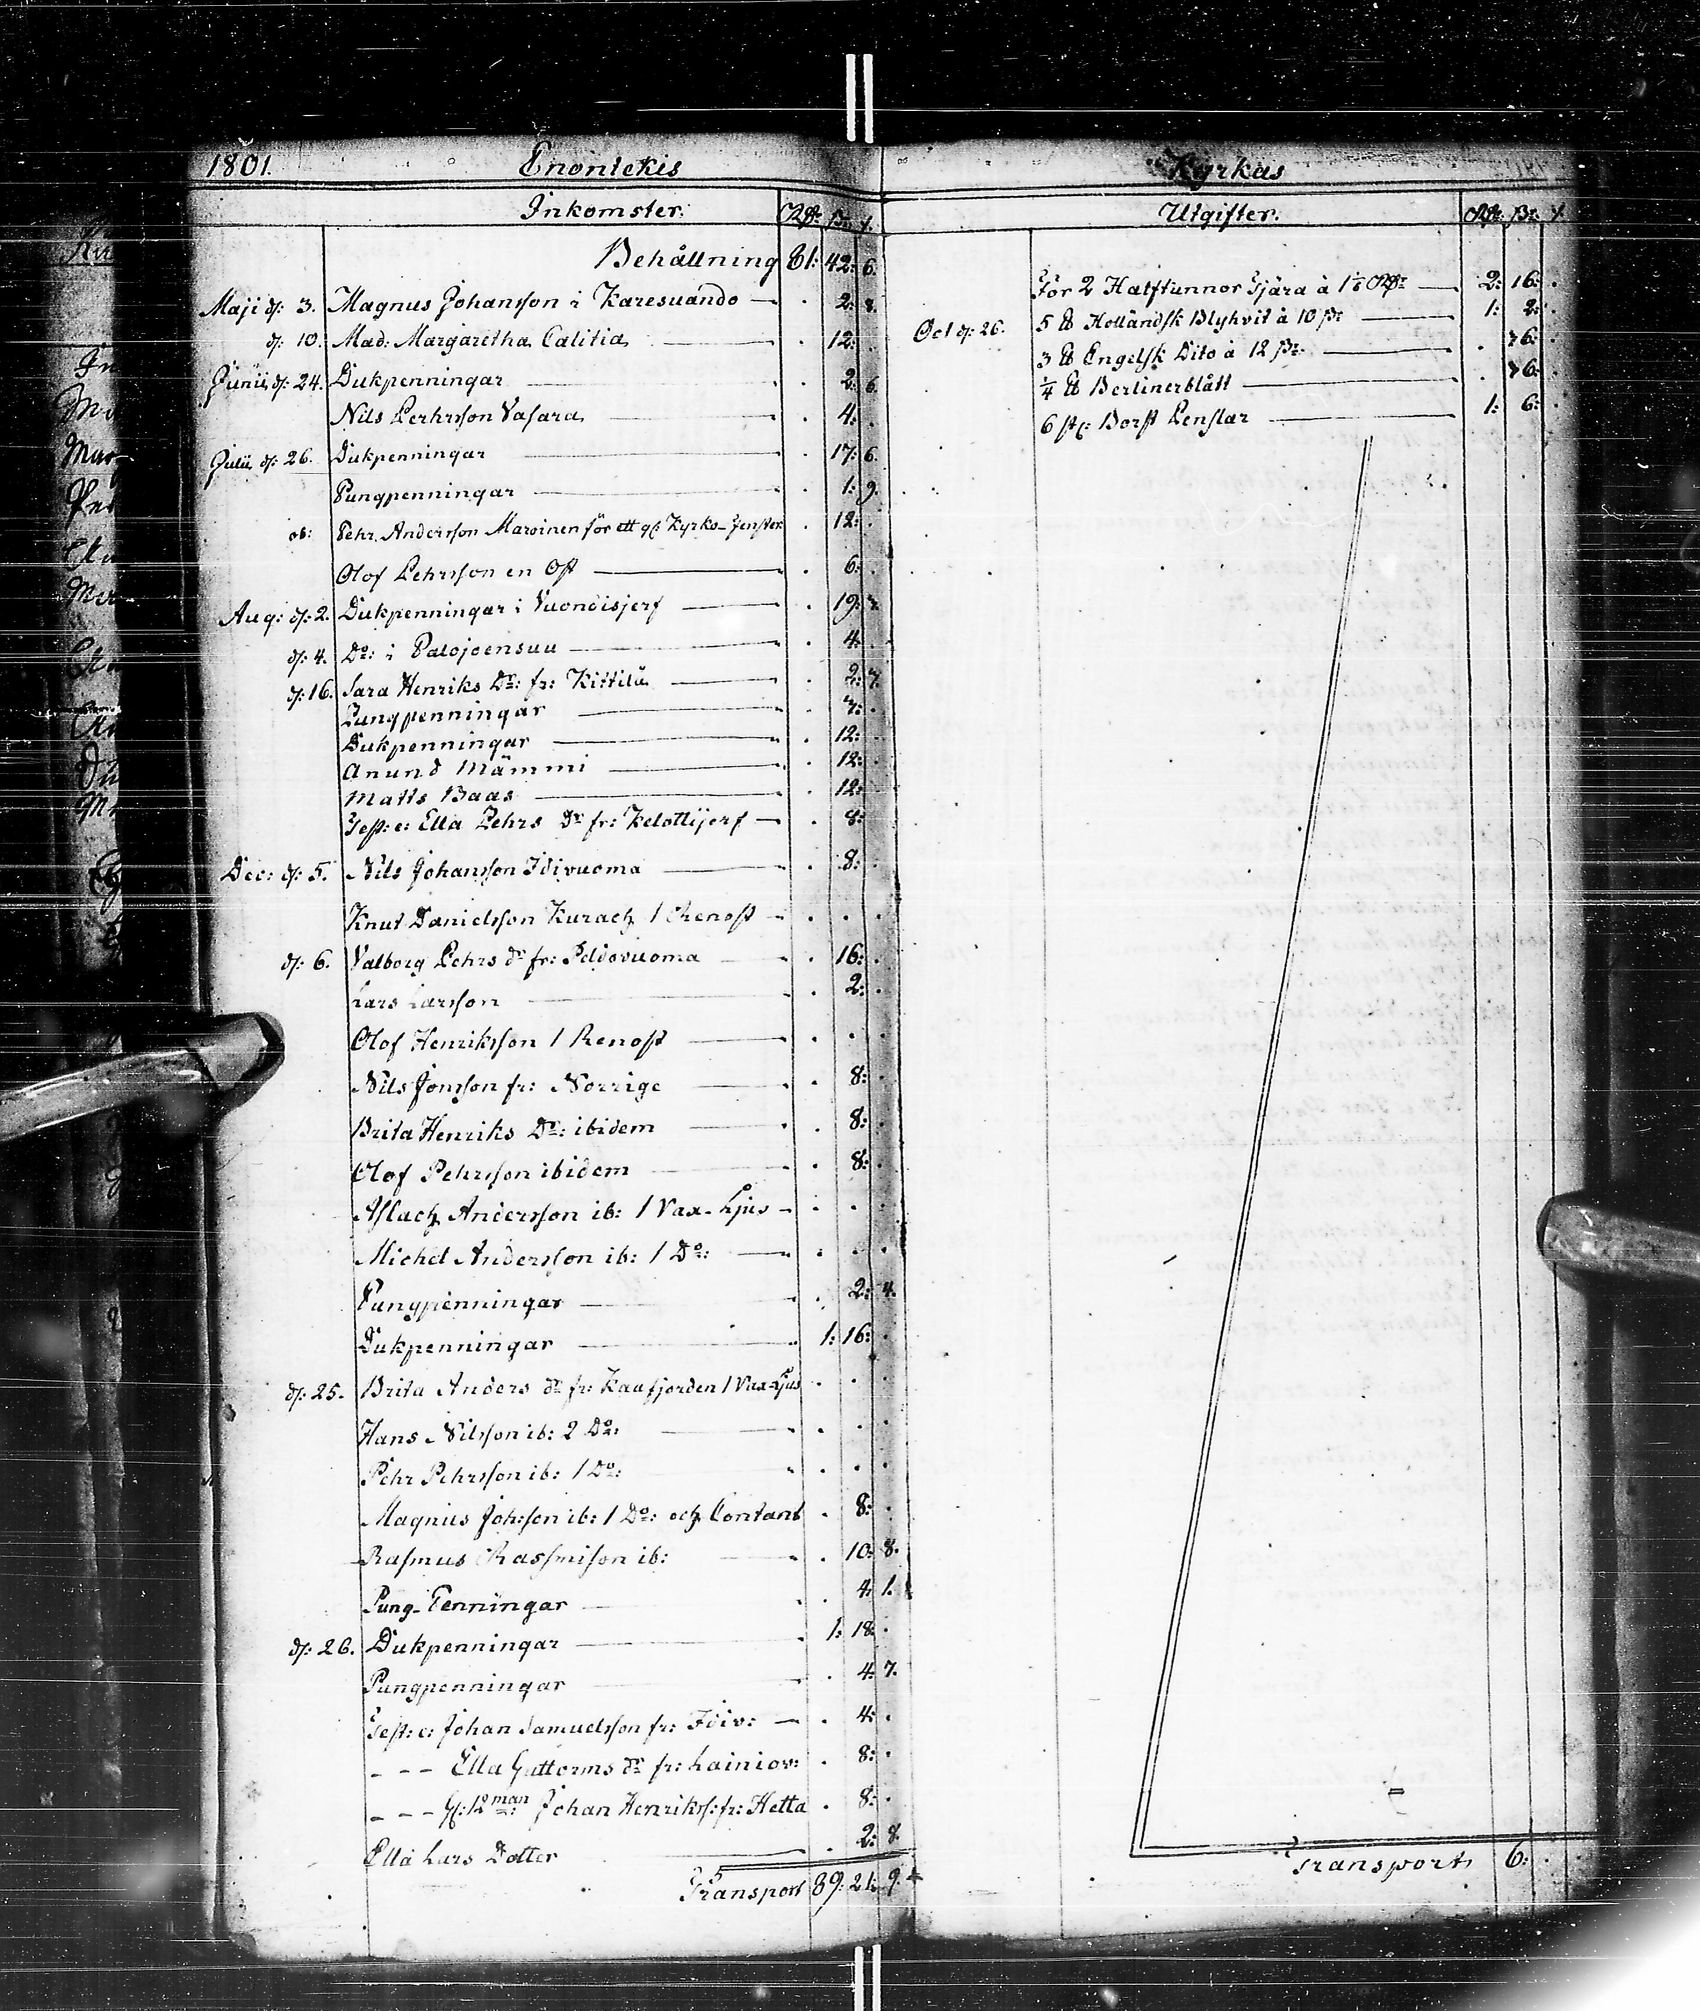 1801. Enontekis
Inkomster. Rd: ß: ꝟ.
Behållning 81: 42: 6.
Maji d: 3. Magnus Johansson i Karesuando . 2: 8.
d: 10. Mad: Margaretha Calitia . 12: .
Junii d: 24. Dukpenningar . 2: 6.
Nils Perhrsson Vasara . 4: .
Julii d: 26. Dukpenningar . 17: 6.
Pungpenningar . 1: 9.
Pehr Andersson Maroinen för ett Kyrko-Fenster . 12: .
Olof Pehrsson en Ost . 6: .
Aug: d: 2. Dukpenningar i Vuondisjerf . 19:
d: 4. Do: i Palojoensuu . 4: .
d: 16. Sara Henriks Dr: fr: Kittilä . 2: 7.
Pungpenningar . 7: .
Dukpenningar . 12: .
Anund Mämmi . 12: .
Matts Baas . 12: .
Test: e: Ella Pehrs Dr fr: Kelottijerf . 8:
Dec: d: 5. Nils Johansson Idivuoma . 8: .
Knut Danielsson Kurach 1 Renost . . .
d: 6. Valborg Pehrs dr fr: Peldovuoma . 16: .
Lars Larsson . 2: .
Olof Henriksson 1 Renost . . .
Nils Jonsson fr: Norrige . 8: .
Brita Henriks Dr: ibidem . 8: .
Olof Pehrsson ibidem . 8: .
Aslach Andersson ib: 1 Vax-Ljus . . .
Michel Andersson ib: 1 Do: . . .
Pungpenningar . 2: 4.
Dukpenningar 1: 16: .
d: 25. Brita Anders dr fr: Kaafjorden 1 Vax-Ljus . . .
Hans Nilsson ib: 2 Do: . . .
Pehr Pehrsson ib: 1 Do: . . .
Magnus Joh:son ib: 1 Do: och Contant . 8: .
Rasmus Rasmison ib: . 10: 8.
Pung-Penningar . 4: 1.
d: 26. Dukpenningar 1: 18: .
Pungpenningar . 4: 7.
Test: e: Johan Samuelsson fr: Idiv: . 4: .
- - - Ella Guttorms dr fr: Lainiov: . 8: .
- - - 12man: Johan Henrikss: fr: Hetta . 8: .
Ella Lars Dotter . 2: 8.
Transport 89: 21: 9.
Kyrkas
Utgifter. Rd: ß: ꝟ.
För 2 Halftunnor Tjära 2: 16: .
Oct d: 26. 5 ℔ Holländsk Blyhvit à 10 ß: 1: 2: .
3 ℔ Engelsk Dito à 12 ß: . 36: .
¼ ℔ Berlinerblått . 36: .
6 st: Borst Penslar 1: 6: .
Transport 6: . .